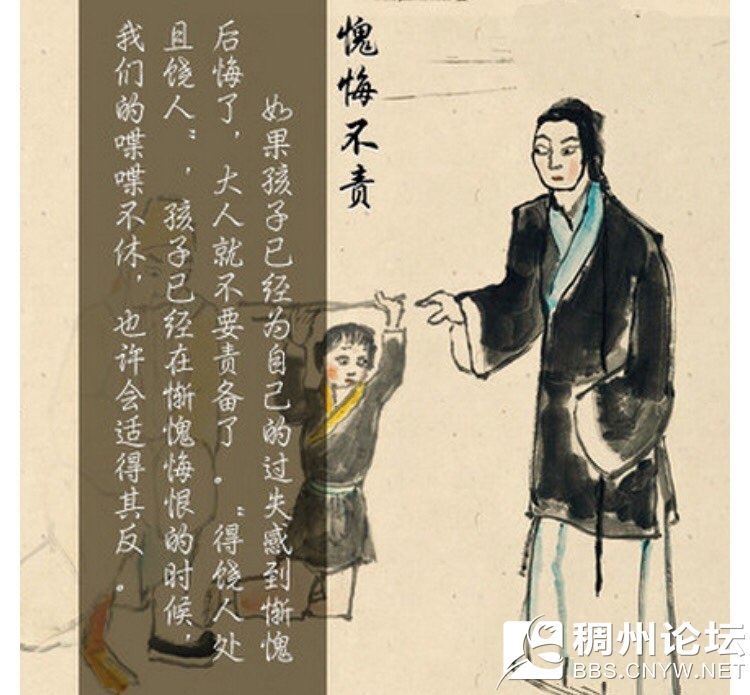 愧悔不责
如果孩子已经为自己的过失感到惭愧
后悔了，大人就不要责备了。“得饶人处
且饶人”，孩子已经在惭愧悔恨的时候，
我们的喋喋不休，也许会适得其反。
稠州论坛
BBS.CNYW.NET